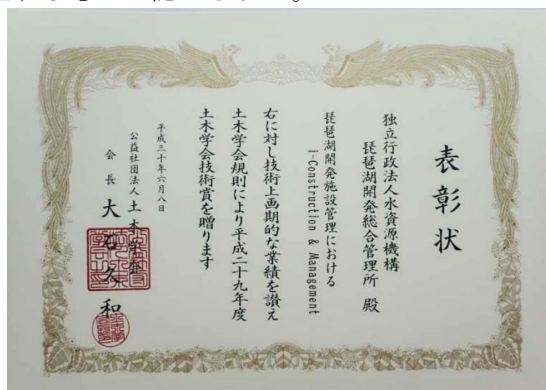 表彰状
独立行政法人水資源機構
琵琶湖開発総合管理所 殿
琵琶湖開発施設管理における
i-Construction & Management
右に対し技術上画期的な業績を讃え
土木学会規則により平成二十九年度
土木学会技術賞を贈ります
平成三十年六月八日
公益社団法人土木学会
会長 大石久和